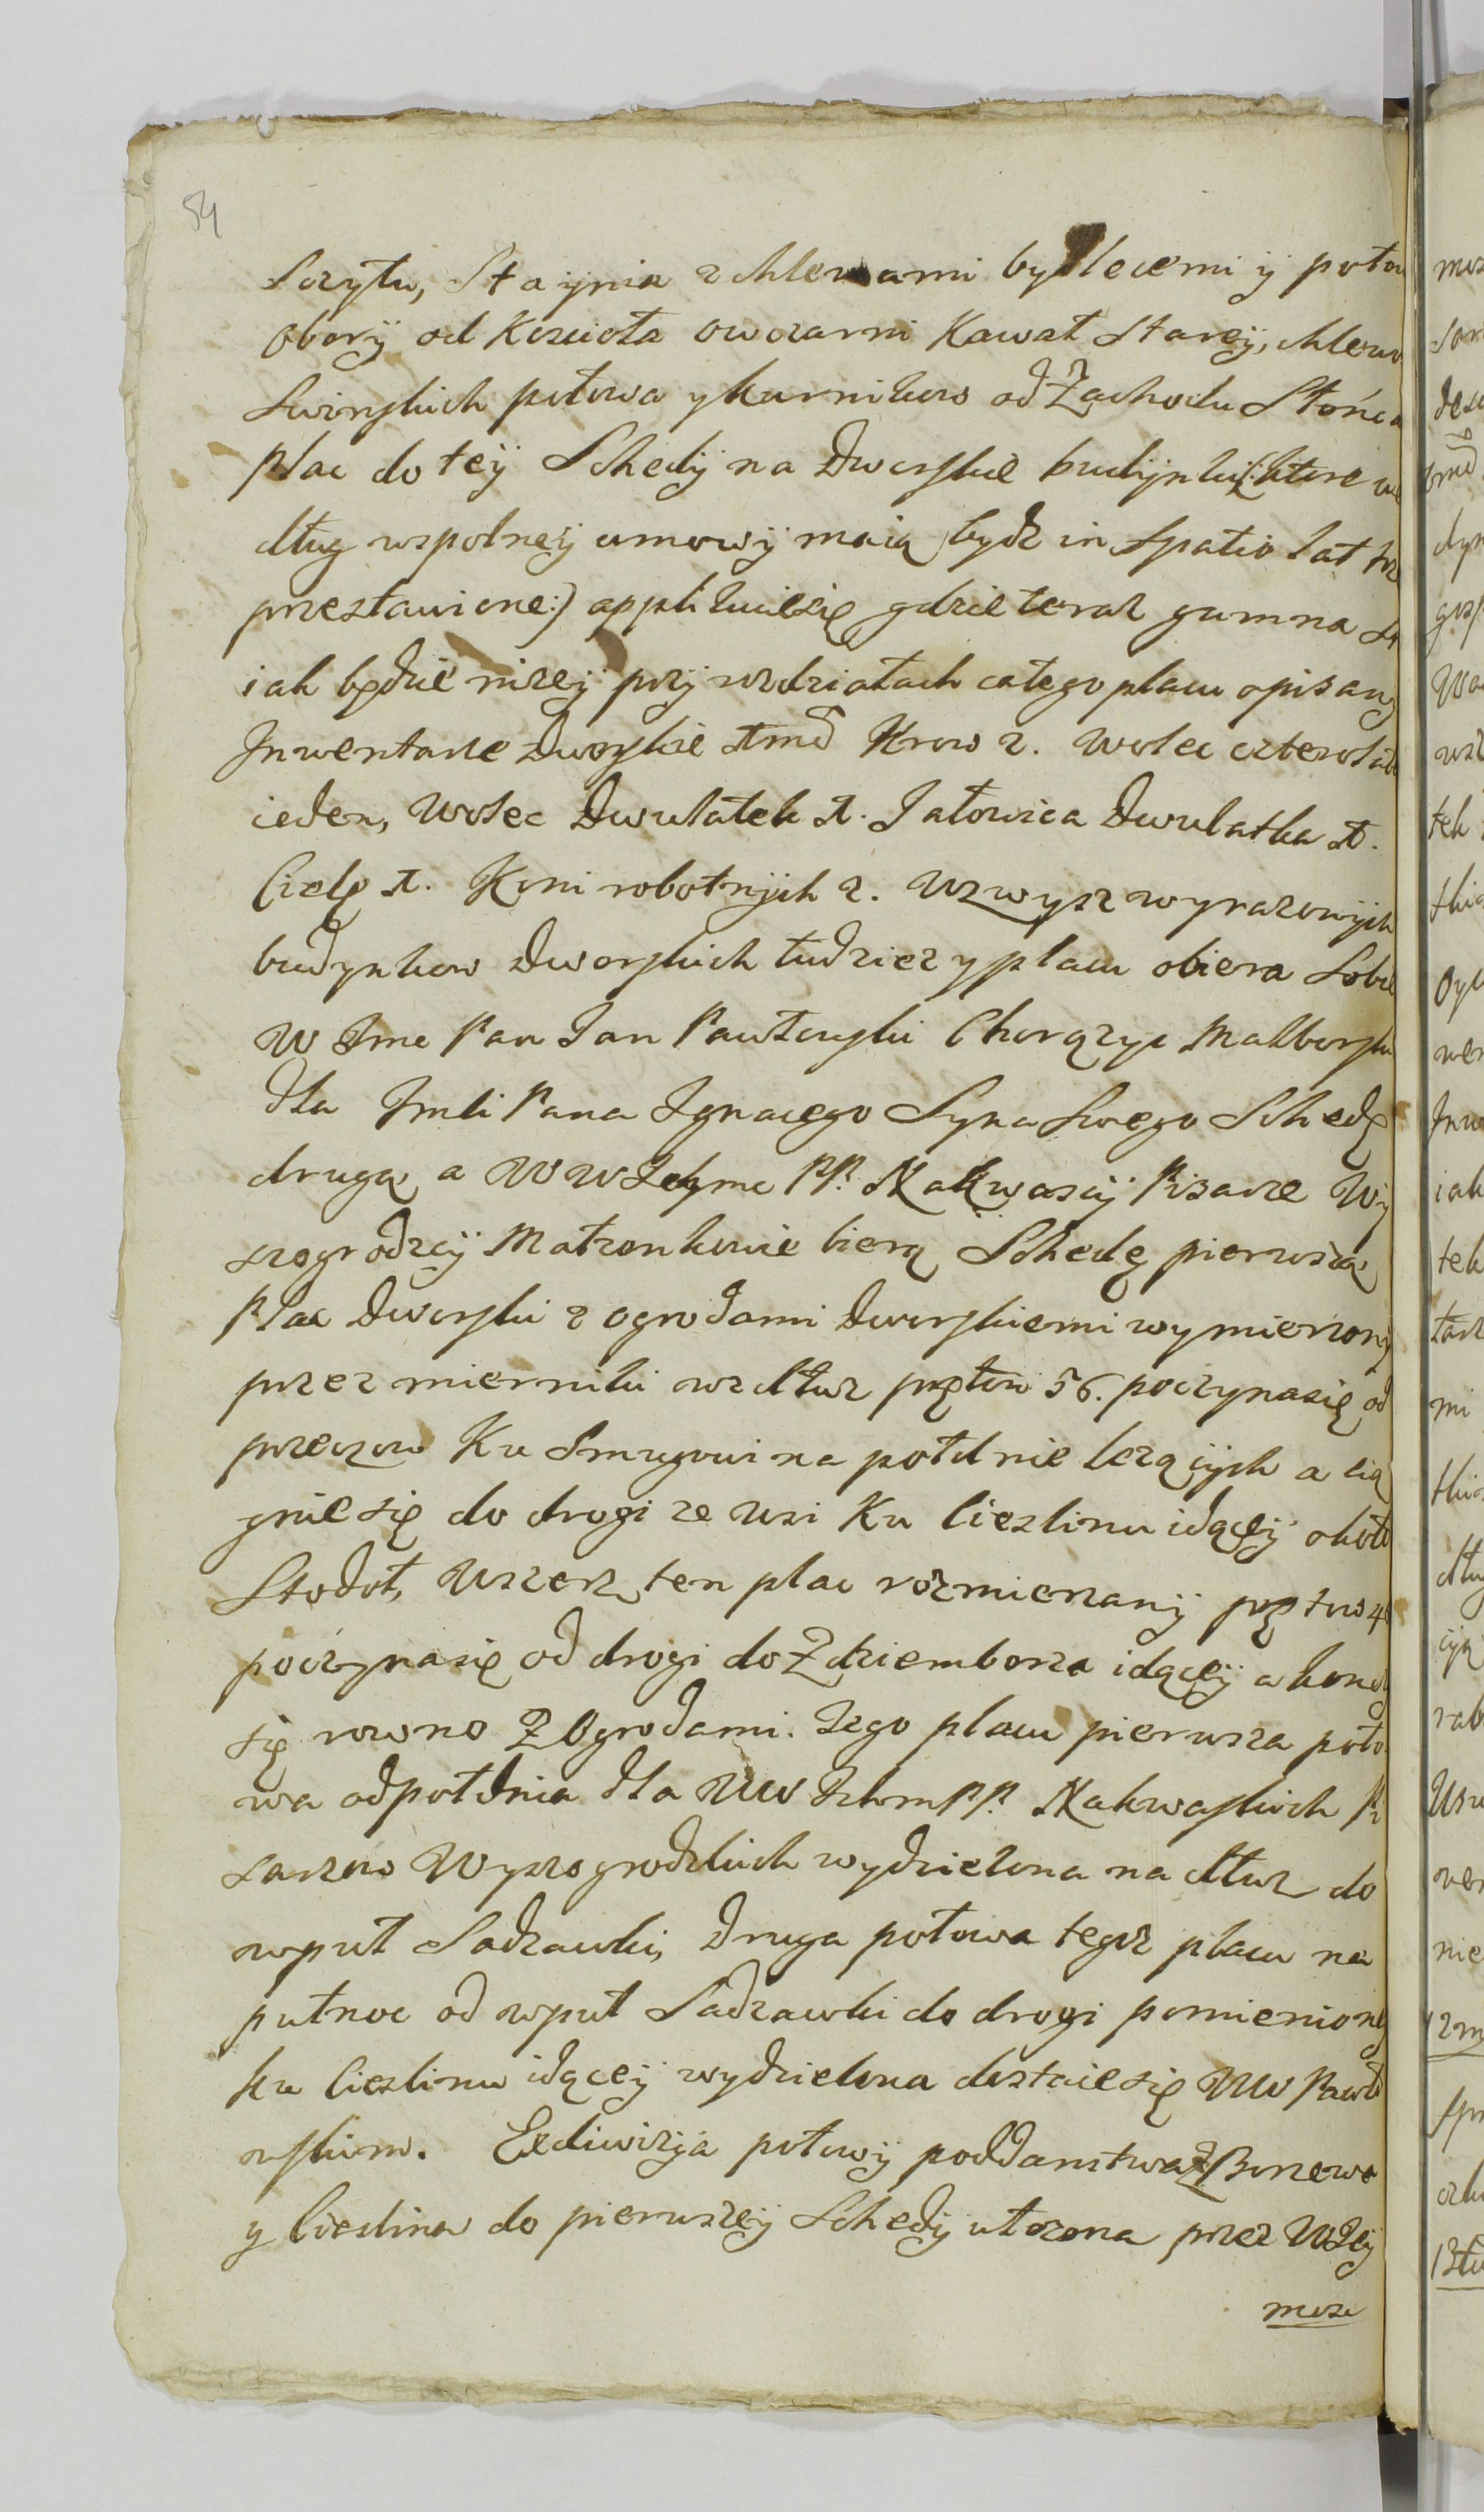 54
Sczytu, Staynia z chlewami bydlecemi ÿ poło
Oborÿ od Kościoła owczarni Kawał Stareÿ, chlewo
Swinskich połowa y kurnikow od Zachodu Słońca
plac do teÿ Schedÿ na Dworskie budÿnki (: ktore we
dług wspolneÿ umowÿ maią bydz in spatio lat
przestawione:) applikuiesię gdzie teraz gumna
iak będzie niżeÿ przÿ rozdziałach całego placu opisanÿ
Inwentarze Dworskie Krow 2. wolec czterolat
ieden, Wolec Dwulatek 1. Jałowica Dwulatka 1.
Cielę 1. Koni robotnÿch 2. Wzwysz wyrazonÿch
budynkow Dworskich tudziesz y placu obiera Sobie
W Jmc Pan Jan Pawłowski Chorążyc Malborski
dla Jmci Pana Ignacego Syna Swego Schedę
drugą a WW Ichmc PP. Nakwascÿ Pisarze Wÿ
szogrodzcÿ Małzonkowie bierą Schedę pierwszą
Plac Dworski z ogrodami Dworskiemi wymierzonÿ
przez miernika wzdłuz prętow 56. poczynasię od
przeczow Ku Smugowi na połdnie lezącÿch a cią
gnie się do drogi ze wsi Ku Cieslinu idąceÿ około
Stodoł, Wszerz ten plac rozmierzanÿ prętow 4
poczÿnasię od drogi do Zdziemborza idąceÿ a konczÿ
się rowno z Ogrodami. Tego placu pierwsza poło
wa odpołdnia dla WW Ichm PP. Nakwaskich Pi
sarzow Wyszogrodzkich wydzielona na dłuz do
wpuł Sadzawki, Druga połowa tegoz placu na
pułnoc od wpuł Sadzawki do drogi pomienioneÿ
ku Cieslinu idąceÿ wydzielona dostaie się WW Pawło
wskim. Exdiwizÿa połowÿ poddanstwa z Borzewa
y Cieslina do pierwszeÿ Schedÿ ułozona przez W Jeÿ
mosc